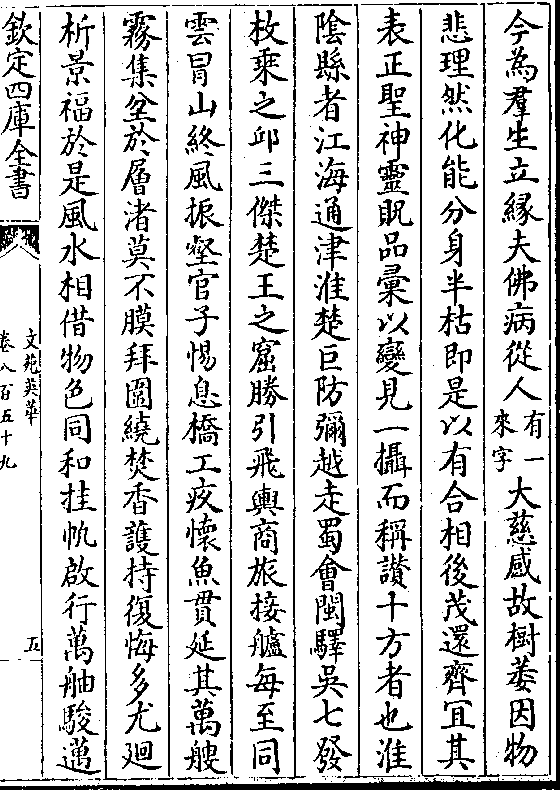 今為羣生立縁夫佛病從人有一來字大慈感故樹萎因物
悲理然化能分身半枯即是以有合相後茂還齊宜其
表正聖神靈眖品彚以變見一攝而稱讃十方者也淮
陰縣者江海通津淮楚巨防彌越走蜀會閩驛吳七發
枚乘之邱三傑楚王之窟勝引飛輿商旅接艫每至同
雲冐山終風振壑官子惕息橋工疚懷魚貫延其萬艘
霧集坌於層渚莫不膜拜圍繞焚香護持復悔多尤廻
析景福於是風水相借物色同和挂帆啟行萬舳駿邁
欽定四庫全書
文苑英華
卷八百五十九
五